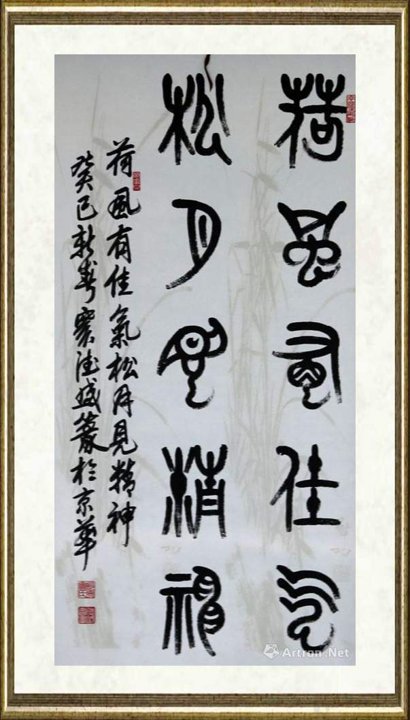 荷風有佳氣
松月見精神
荷風有佳氣松月見精神
癸巳新春德盛篆於京華
Artron.Net